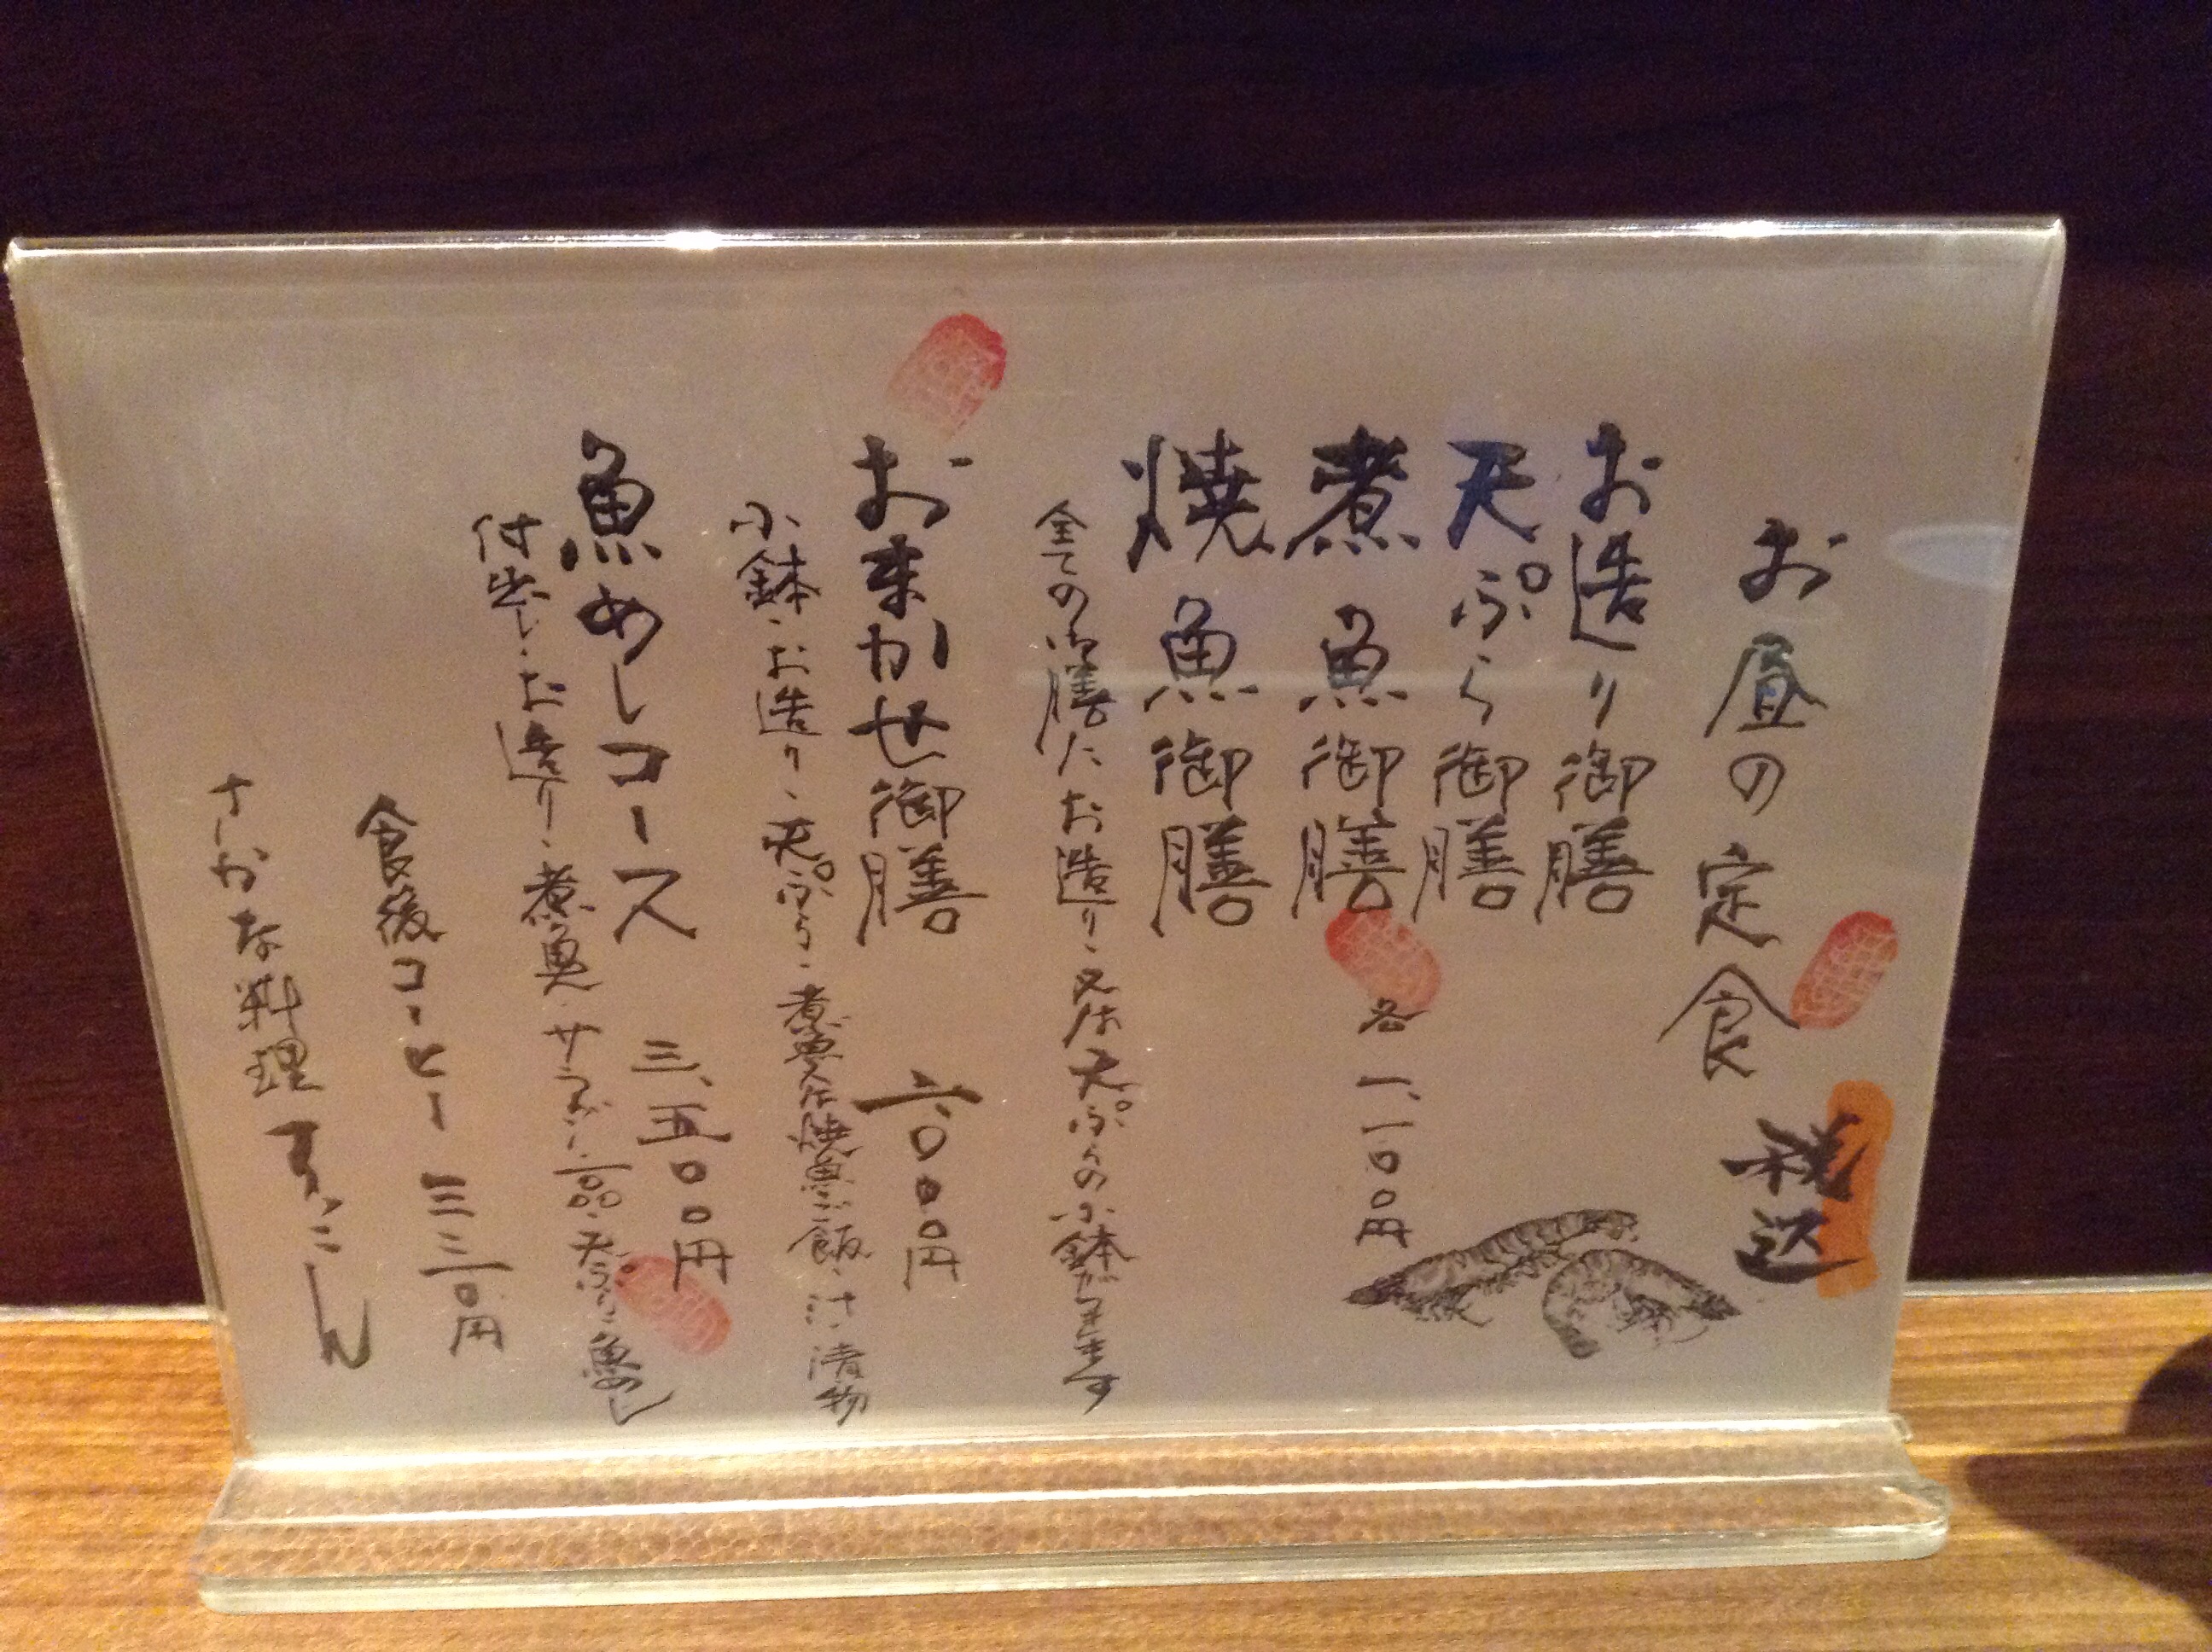 お昼の定食 税込
お造り御膳
天ぷら御膳
煮魚御膳
焼魚御膳
各 一、一〇〇円
全ての御膳にお造り、又は天ぷらの小鉢がつきます
おまかせ御膳 二、〇〇〇円
小鉢、お造り、天ぷら、煮魚又は焼魚、ご飯、汁、漬物
魚めしコース 三、五〇〇円
付出し、お造り、煮魚、サラダ、一品、天ぷら、魚めし
食後コーヒー 三三〇円
さかな料理